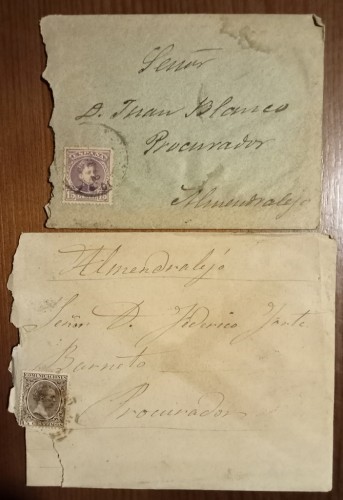 Señor
D. Juan Blanco
Procurador
Almendralejo
ESPAÑA
Almendralejo
Señor D.
Barneto
Procurador
COMUNICACIONES